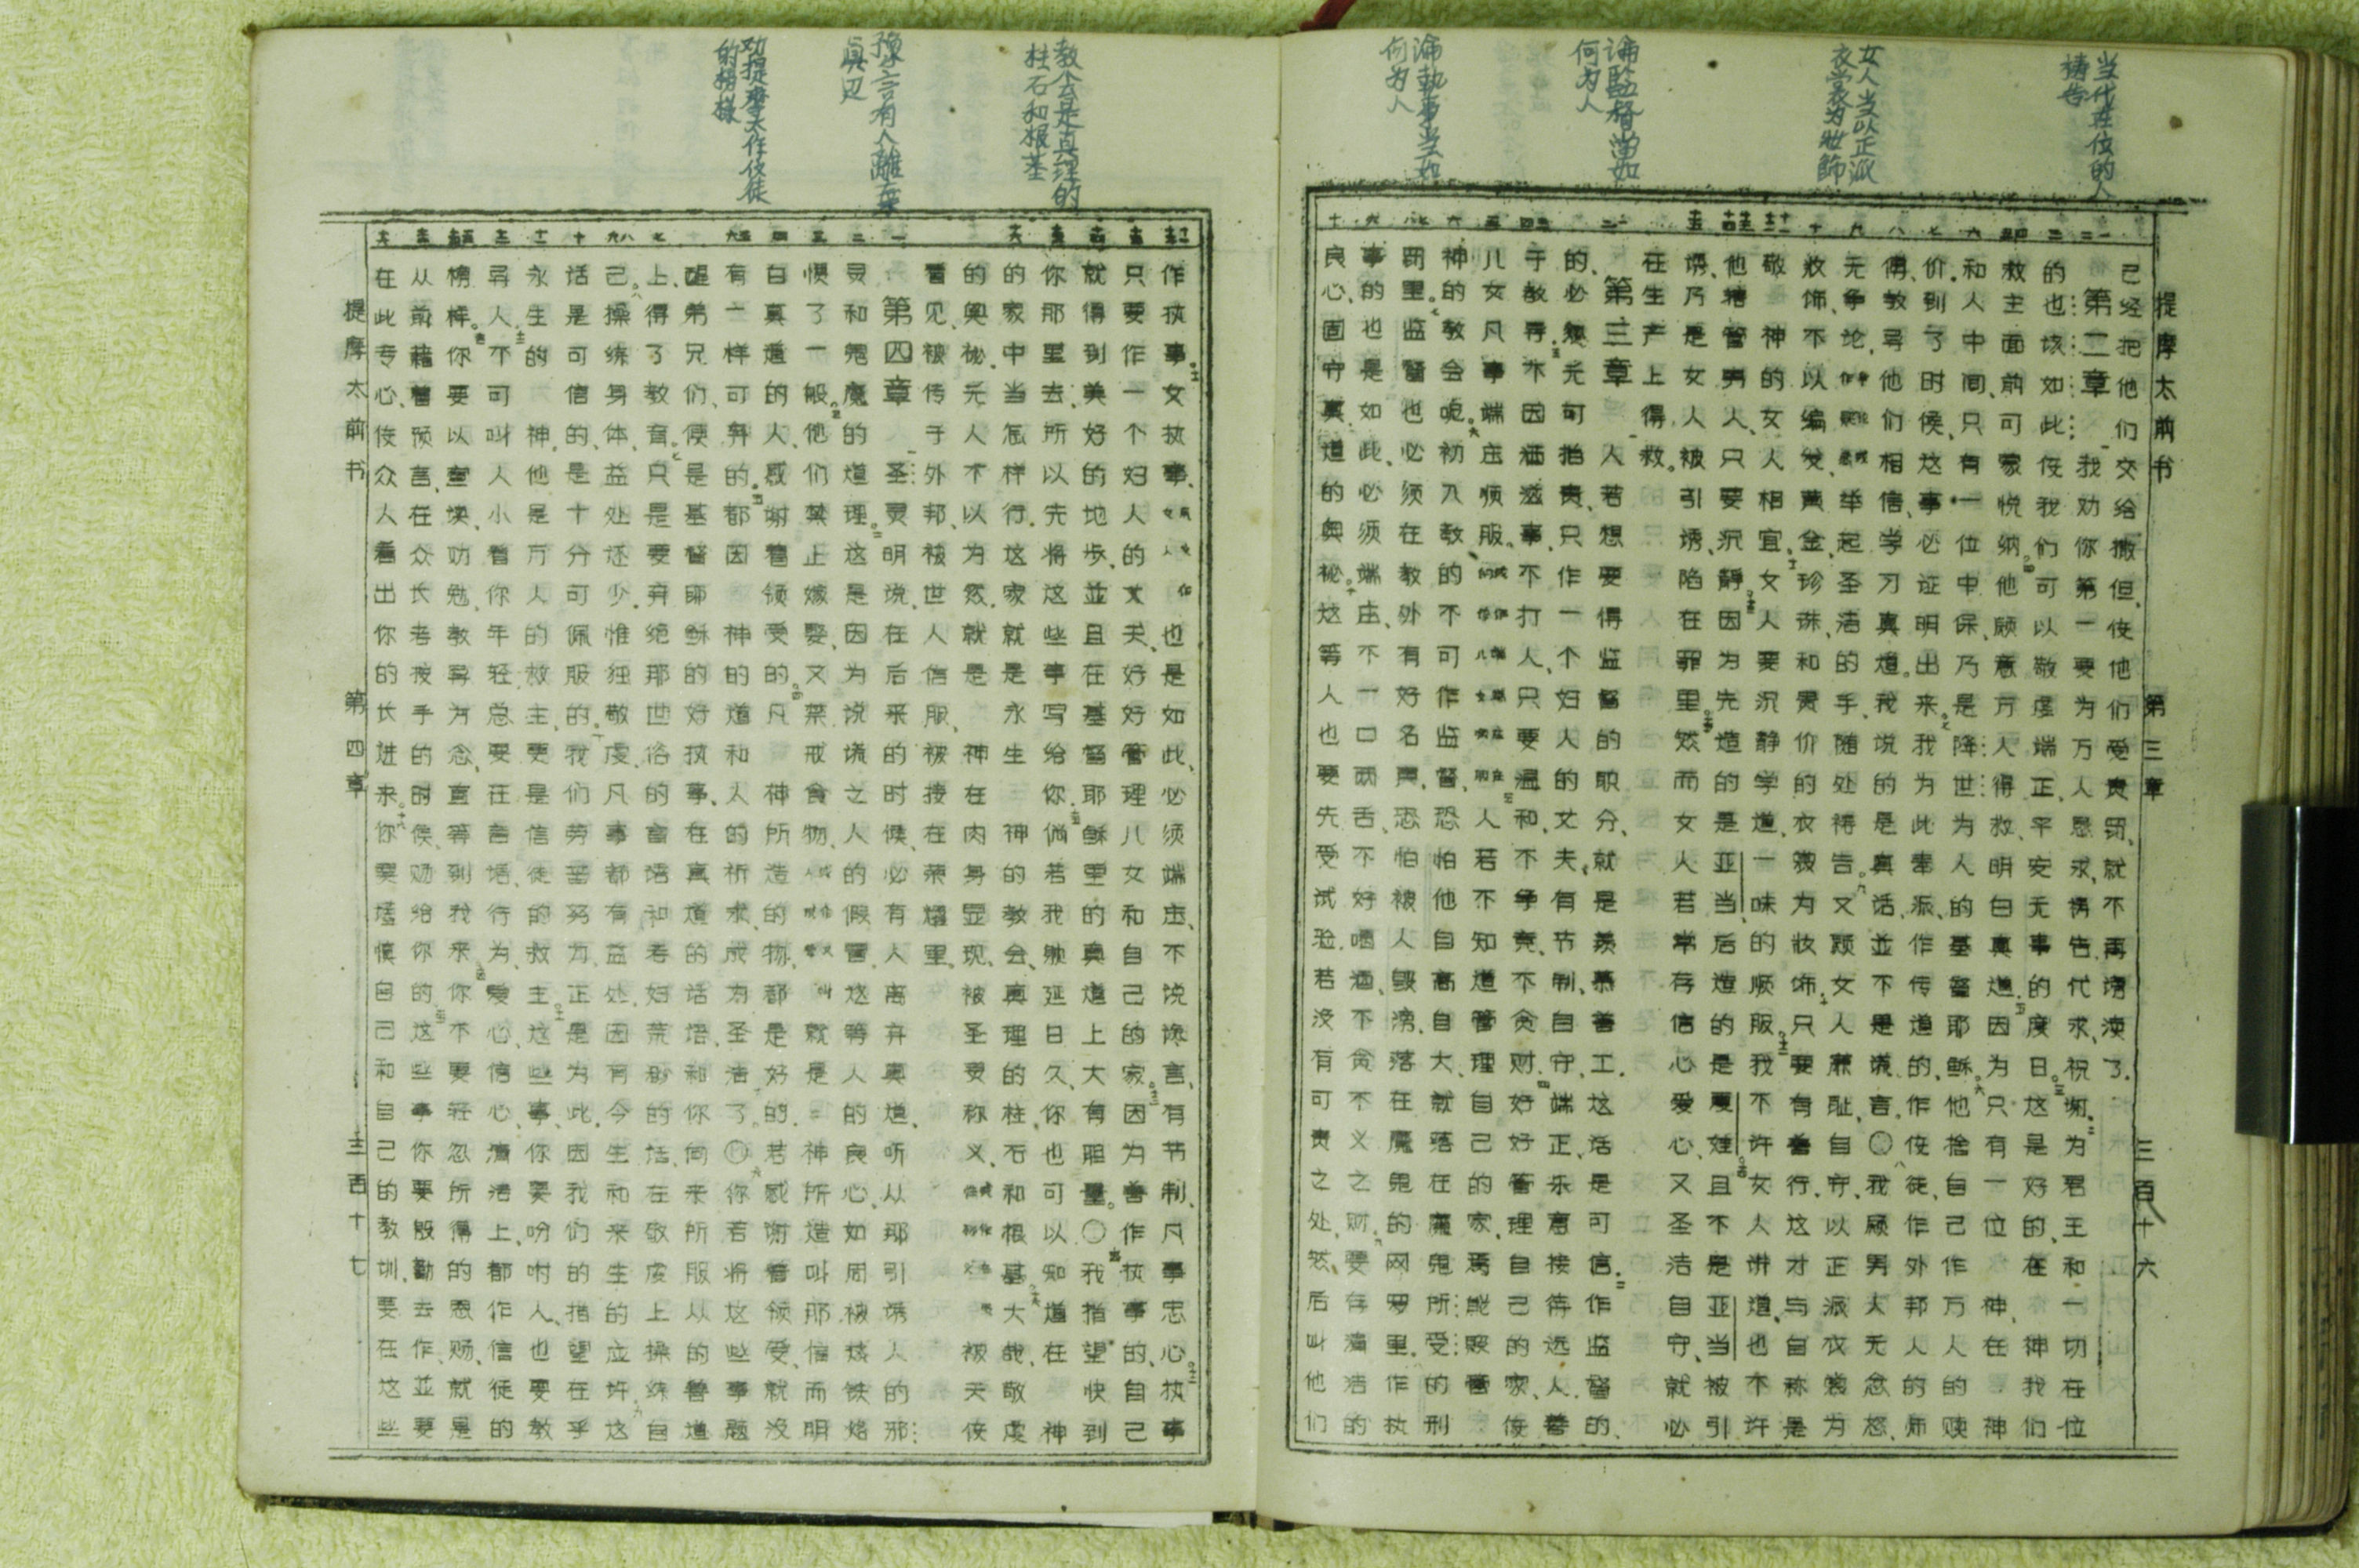 当代在位的人
祷告
女人当以正派
衣裳为妝飾
论監督當如
何为人
論執事当如
何为人
提摩太前书 第三章 三百十六
己经把他们交给撒但、使他们受责罚、就不再谤渎了.
第二章 我劝你第一要为万人恳求、祷告、代求、祝谢、为君王和一切在位
的也该如此、使我们可以敬虔端正、平安无事的度日。这是好的、在 神我们
救主面前可蒙悦纳。他愿意万人得救、明白真道。因为只有一位 神、在 神
和人中间、只有一位中保、乃是降世为人的基督耶稣。他捨自己作万人的赎
价、到了时候、这事必证明出来。我为此奉派、作传道的、作使徒、作外邦人的师
傅、教导他们相信、学习真道。我说的是真话、並不是谎言。〇我愿男人无忿怒、
无争论、举起圣洁的手、随处祷告。又愿女人廉耻、自守、以正派衣裳为
妝饰、不以编发、黄金、珍珠、和贵价的衣裳为妝饰、只要有善行、这才与自称是
敬 神的女人相宜。女人要沉静学道、一味的顺服。我不许女人讲道、也不许
他辖管男人、只要沉静。因为先造的是亚当、后造的是夏娃、且不是亚当被引
诱、乃是女人被引诱、陷在罪里。然而女人若常存信心爱心、又圣洁自守、就必
在生产上得救。
第三章 人若想要得监督的职分、就是羡慕善工.这话是可信.作监督的、
的、必须无可指责、只作一个妇人的丈夫、有节制、自守、端正、乐意接待远人、善
于教导、不因酒滋事、不打人、只要温和、不争竞、不贪财、好好管理自己的家、使
儿女凡事端庄顺服。人若不知道管理自己的家、焉能照管
神的教会呢。初入教的不可作监督、恐怕他自高自大、就落在魔鬼所受的刑
罚里。监督也必须在教外有好名声、恐怕被人毁谤、落在魔鬼的网罗里.作执
事的也是如此、必须端庄、不一口两舌、不好喝酒、不贪不义之财、要存清洁的
良心、固守真道的奥秘。这等人也要先受试验、若没有可责之处、然后叫他们
教会是真理的
柱石和根基
豫言有人離棄
真道
劝提摩太作使徒
的榜樣
作执事。女执事、也是如此、必须端庄、不说谗言、有节制、凡事忠心。执事
只要作一个妇人的丈夫、好好管理儿女和自己的家。因为善作执事的、自己
就得到美好的地步、並且在基督耶稣里的真道上大有胆量。〇我指望快到
你那里去、所以先将这些事写给你、倘若我躭延日久、你也可以知道在 神
的家中当怎样行。这家就是永生 神的教会、真理的柱石和根基。大哉、敬虔
的奥秘、无人不以为然.就是 神在肉身显现、被圣灵称义、被天使
看见、被传于外邦、被世人信服、被接在荣耀里、
第四章 圣灵明说、在后来的时候、必有人离弃真道、听从那引诱人的邪
灵和鬼魔的道理。这是因为说谎之人的假冒、这等人的良心、如同被热铁烙
惯了一般。他们禁止嫁娶、又禁戒食物、就是 神所造叫那信而明
白真道的人、感谢着领受的。凡 神所造的物、都是好的、若感谢着领受、就没
有一样可弃的。都因 神的道和人的祈求、成为圣洁了。〇你若将这些事题
醒弟兄们、便是基督耶稣的好执事、在真道的话语、和你向来所服从的善道
上、得了教育。只是要弃绝那世俗的言语、和老妇荒渺的话、在敬虔上操练自
己。操练身体、益处还少、惟独敬虔、凡事都有益处、因有今生和来生的应许。这
话是可信的、是十分可佩服的。我们劳苦努力、正是为此、因我们的指望在乎
永生的 神、他是万人的救主、更是信徒的救主。这些事、你要吩咐人、也要教
导人。不可叫人小看你年轻、总要在言语、行为、爱心、信心、清洁上、都作信徒的
榜样。你要以宣读、劝勉、教导为念、直等到我来。你不要轻忽所得的恩赐、就是
从前藉着预言、在众长老按手的时候、赐给你的。这些事你要殷勤去作、並要
在此专心、使众人看出你的长进来。你要谨慎自己和自己的教训、要在这些
提摩太前书 第四章 三百十七